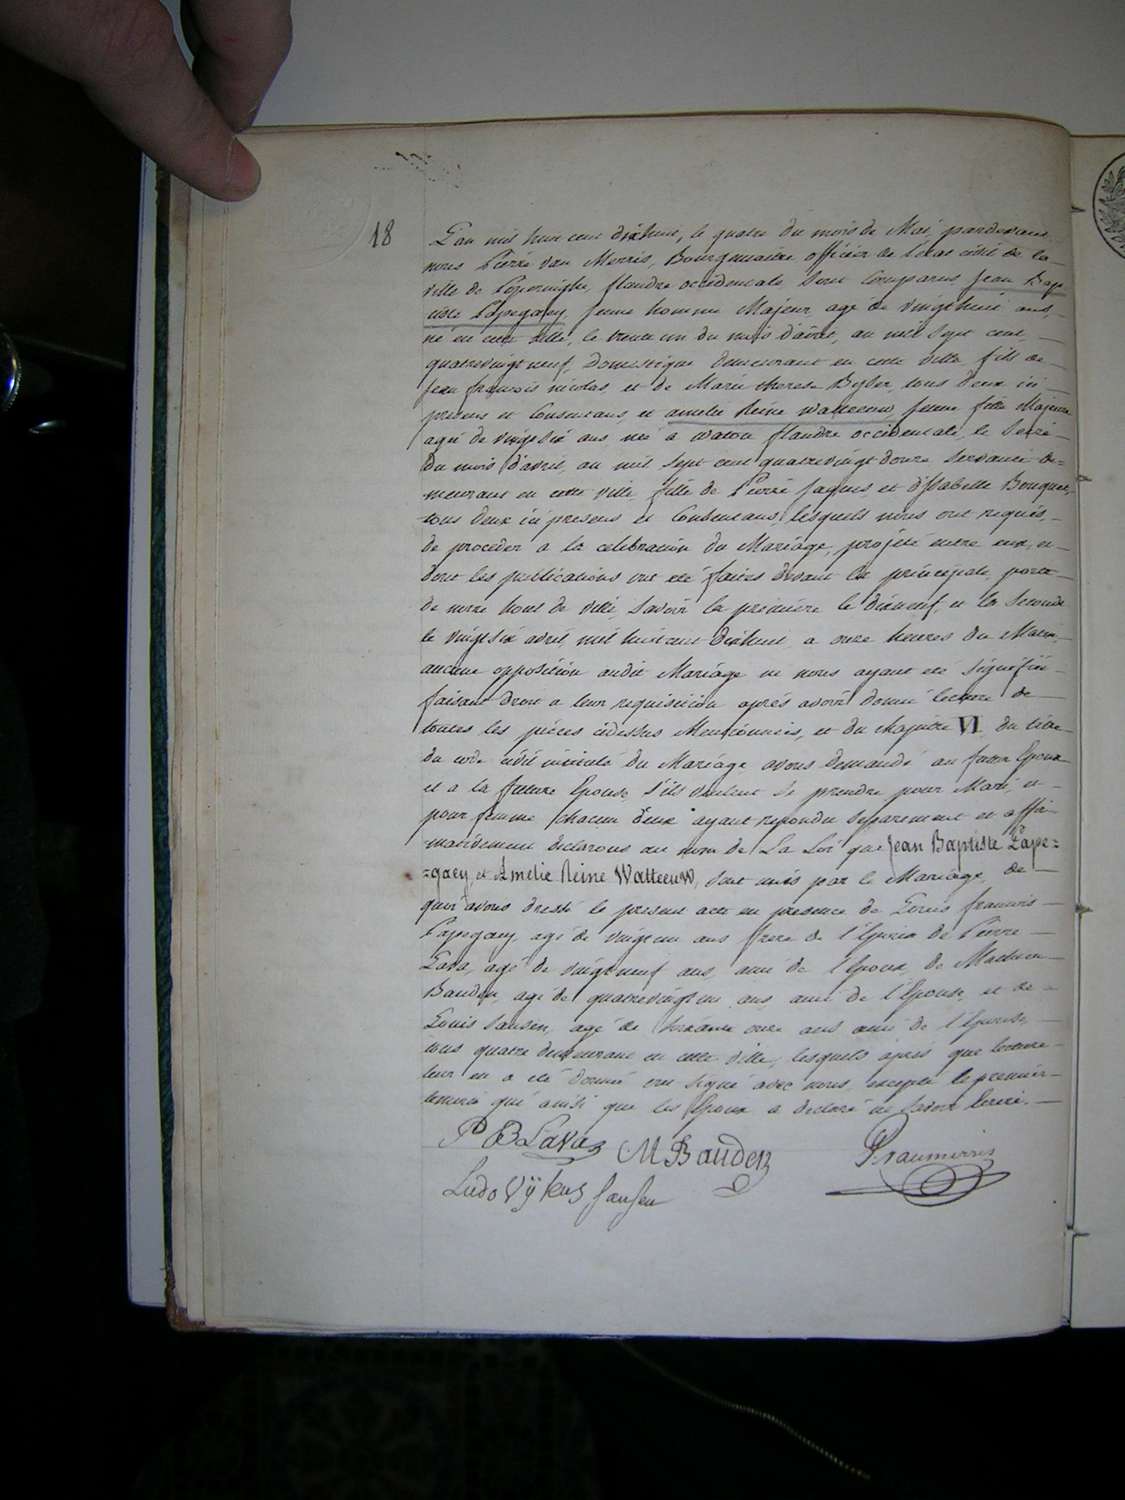 18
L'an mil huit cent dixhuit, le quatre du mois de Mai, pardevant
nous Pierre van Merris, Bourgmaitre officier de l'etat civil de la
ville de Poperinghe, flandre occidentale, sont Comparus Jean Bap
tiste Papegaey, jeune homme Majeur age de vingthuit ans,
né en cette ville, le trente un du mois d'août, an mil sept cent
quatrevingtneuf, Domestique demeurant en cette ville, fils de
Jean françois nicolas, et de Marie therese Byder, tous deux ici
presens et Consentans, et amelie Reine watteeuw, jeune fille Majeure
agée de vingtsix ans, née à watou flandre occidentale, le Seize
du mois d'avril, an mil sept cent quatrevingt douze servante de=
meurant en cette ville, fille de Pierre Jaques et d'Isabelle Bouquet,
tous deux ici presens et Consentans, lesquels nous ont requis,
de proceder a la celebration du Mariage, projeté entre eux, et
dont les publications ont eté faites devant la principale porte
de notre hotel de ville, savoir la première le dixneuf, et la seconde
le vingtsix avril, mil huitcent dixhuit, a onze heures du Matin,
aucune opposition audit Mariage ne nous ayant eté signifiée
faisant droit a leur requisition après avoir donné lecture de
toutes les pièces cidessus Mentionnées, et du chapitre VI du titre
du code civil intitulé du Mariage avons demandé au futur Epoux
et a la future Epouse, s'ils veulent se prendre pour Mari, et
pour femme, chacun d'eux ayant repondu separement et affir
mativement declarons au nom de La Loi que Jean Baptiste Pape=
=gaey, et Amelie Reine Watteeuw, sont unis par le Mariage, de
quoi avons dressé le present acte en presence de Louis francois
Papegaey agé de vingtun ans frere de l'Epoux de Pierre
Lava, agé de vingtneuf ans, ami de l'Epoux, de Mathieu
Bauden, agé de quatrevingtun ans ami de l'Epouse, et de
Louis Jansen, agé de soixante onze ans ami de l'Epouse,
tous quatre demeurant en cette ville, lesquels après que lecture
leur en a eté donné ont signé avec nous, excepté le premier
temoin qui ainsi que les Epoux a declaré ne savoir ecrire.
P B Lava
M Bauden
Pvanmerris
Ludovijkus Jansen